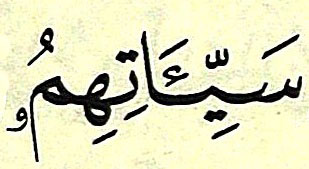 سَيِّـَٔاتِهِمُۥ